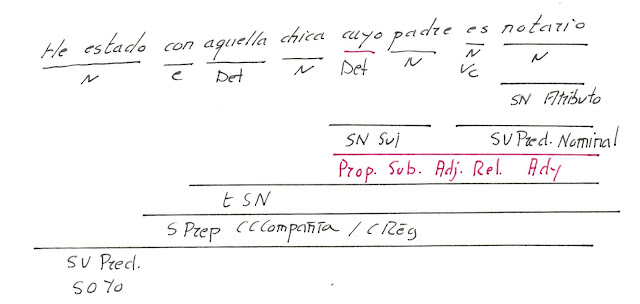 He estado con aquella chica cuyo padre es notario
N e Det N Det N N N
VC
SN Atributo
SN Suj SV Pred. Nominal
Prop. Sub. Adj. Rel. Ady
t SN
S Prep CCCompañía / CRég
SV Pred.
SO Yo